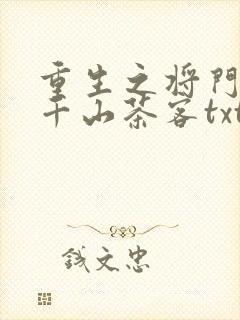 重生之将門
千山茶客txt
钱文忠